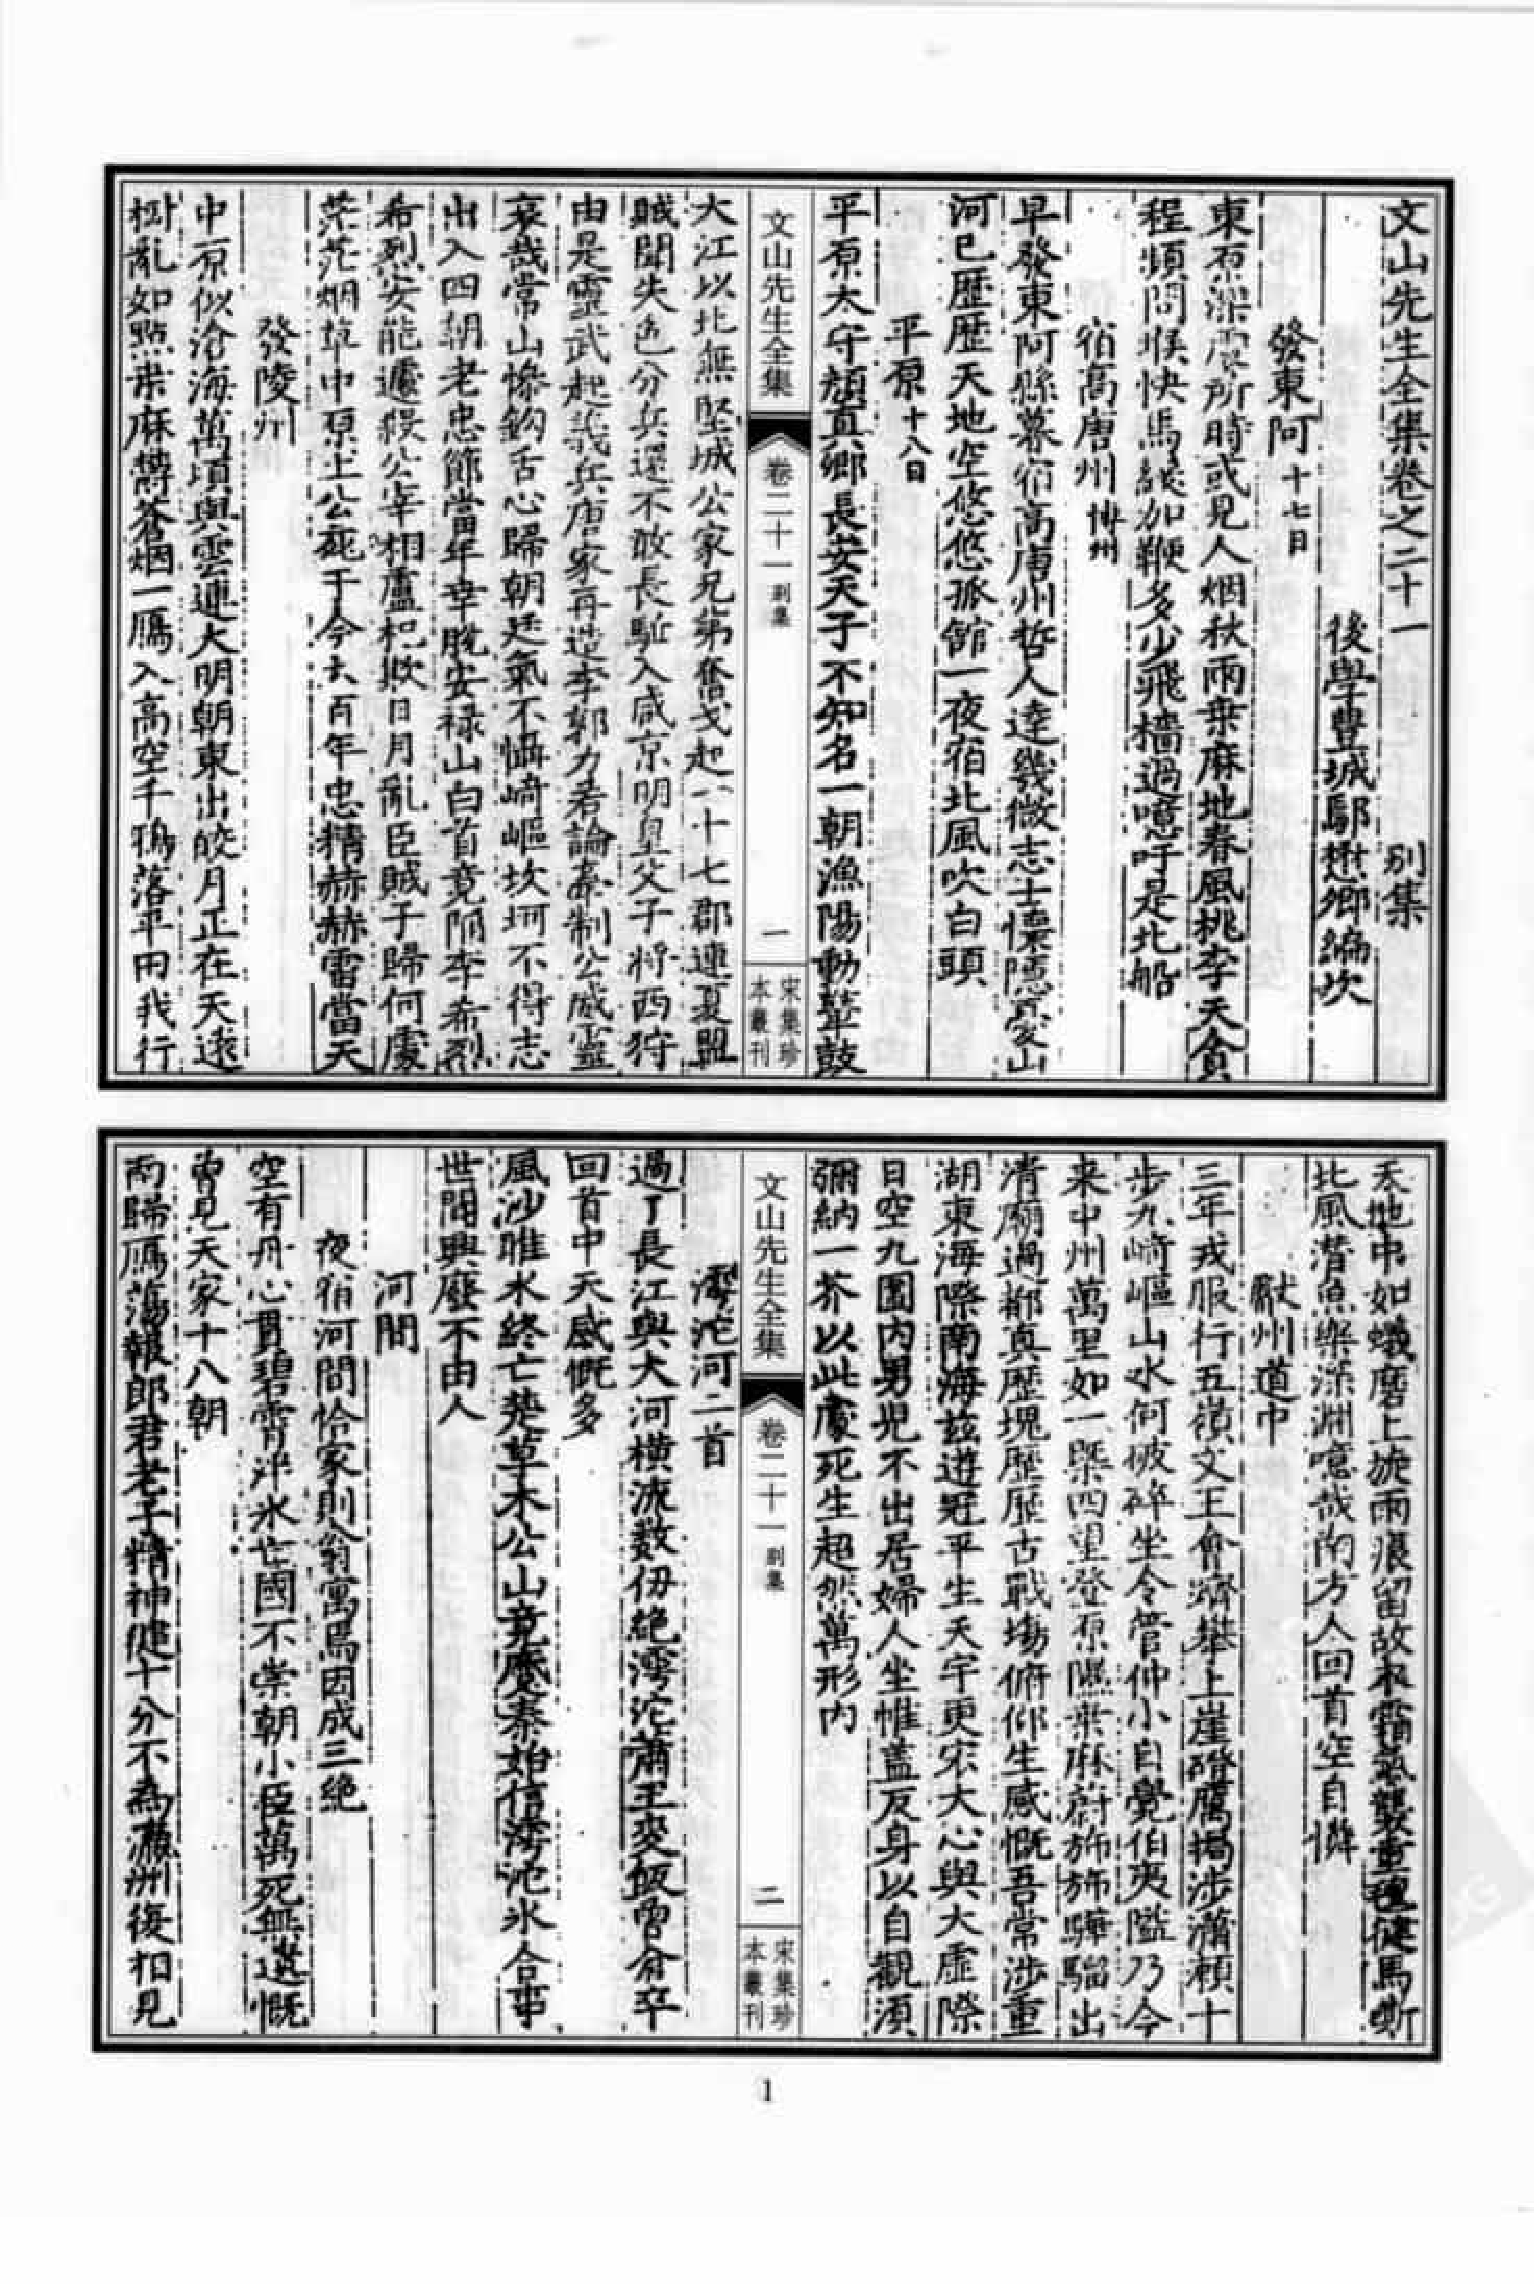 文山先生全集卷之二十一　別集
後學豐城鄢懋卿編次
發東阿十七日
東原深處所時或見人烟秋雨桑麻地春風桃李天貪
程頻問堠快馬緩加鞭多少飛檣過噫吁是北船
宿高唐州博州
早發東阿縣暮宿高唐州哲人達幾微志士懷隱憂山
河已歷歷天地空悠悠孤館一夜宿北風吹白頭
平原十八日
平原太守顏真卿長安天子不知名一朝漁陽動鼙鼓
文山先生全集
卷二十一
別集
一
宋集珍
本叢刊
大江以北無堅城公家兄弟奮戈起一十七郡連夏盟
賊聞失色分兵還不敢長驅入咸京明皇父子將西狩
由是靈武起義兵唐家再造李郭力若論牽制公威靈
哀哉常山慘鉤舌心歸朝廷氣不懾崎嶇坎坷不得志
出入四朝老忠節當年幸脫安祿山白首竟陷李希烈
希烈安能遽殺公宰相盧杞欺日月亂臣賊子歸何處
茫茫烟草中原土公死于今六百年忠精赫赫雷當天
發陵州
中原似滄海萬頃與雲連大明朝東出皎月正在天遠
樹亂如點桑麻蔚蒼烟一鴈入高空千鴉落平田我行
天地中如蟻磨上旋雨痕留故衣霜氣襲重氊健馬嘶
北風潛魚樂深淵噫哉南方人回首空自憐
獻州道中
三年戎服行五嶺文王會濟攀上崖磴厲揭涉瀟瀨十
步九崎嶇山水何破碎坐令管仲小自覺伯夷隘乃今
来中州萬里如一槩四望登原隰桑麻蔚旆旆驊騮出
清廟過都真歷塊歷歷古戰塲俯仰生感慨吾常涉重
湖東海際南海茲遊冠平生天宇更宏大心與大虛際
日空九圍内男兒不出居婦人坐帷蓋反身以自觀須
彌納一芥以此處死生超然萬形内
文山先生全集
卷二十一
別集
二
宋集珍
本叢刊
滹沱河二首
過了長江與大河橫流數仞絕滹沱蕭王麥飯曾倉卒
回首中天感慨多
風沙睢水終亡楚草木公山竟蹙秦始信滹沱氷合事
世間興廢不由人
河間
夜宿河間恰家則翁寓焉因成三絕
空有丹心貫碧霄泮氷亡國不崇朝小臣萬死無遺慨
曾見天家十八朝
南歸鴈蕩報郎君老子精神健十分不為瀛洲復相見